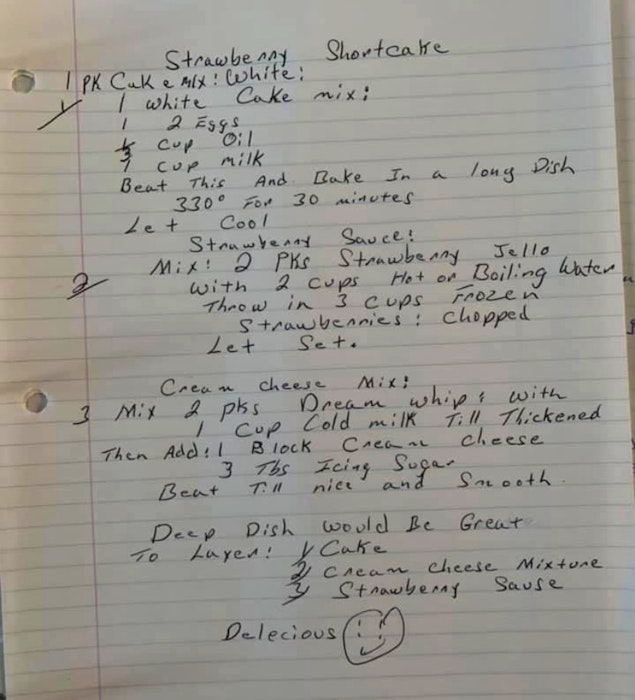 Strawberry Shortcake
1 PK Cake Mix: White:
1 1 White Cake mix:
2 Eggs
⅓ Cup Oil
1 Cup milk
Beat This And Bake In a long Dish
330° For 30 minutes
Let Cool
Strawberry Sauce:
Mix: 2 PKs Strawberry Jello
2 with 2 cups Hot or Boiling Water
Throw in 3 cups Frozen
Strawberries: Chopped
Let Set.
Cream cheese Mix:
3 Mix 2 pks Dream whip: with
1 Cup Cold milk Till Thickened
Then Add: 1 Block Cream cheese
3 Tbs Icing Sugar
Beat Till nice and Smooth.
Deep Dish would Be Great
To Layer: 1 Cake
2 Cream cheese Mixture
3 Strawberry Sause
Delecious